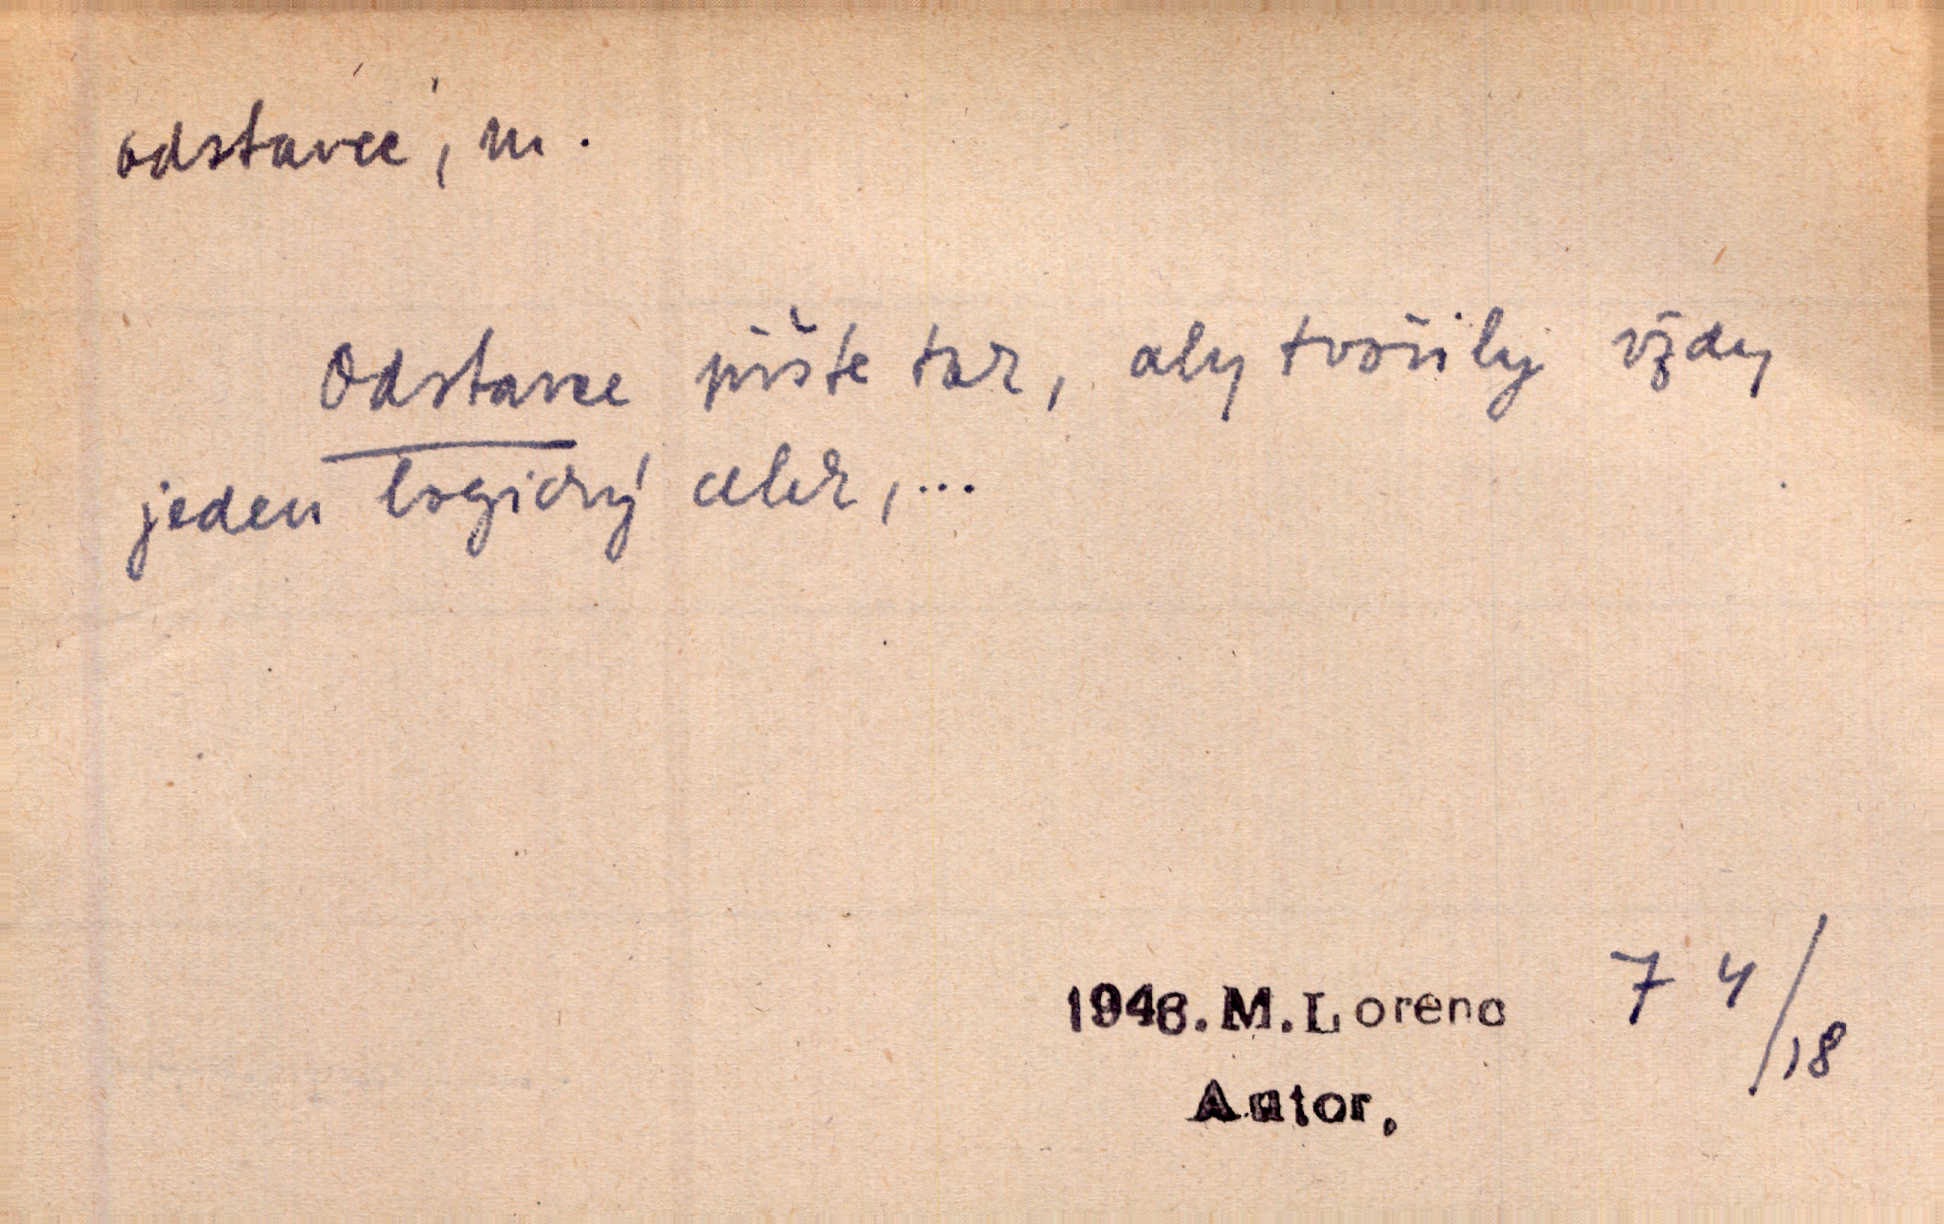 odstavec, m.
Odstavce pište tak, aby tvořily vždy
jeden logický celek,...
1946. M. Lorenc 74/18
Autor,